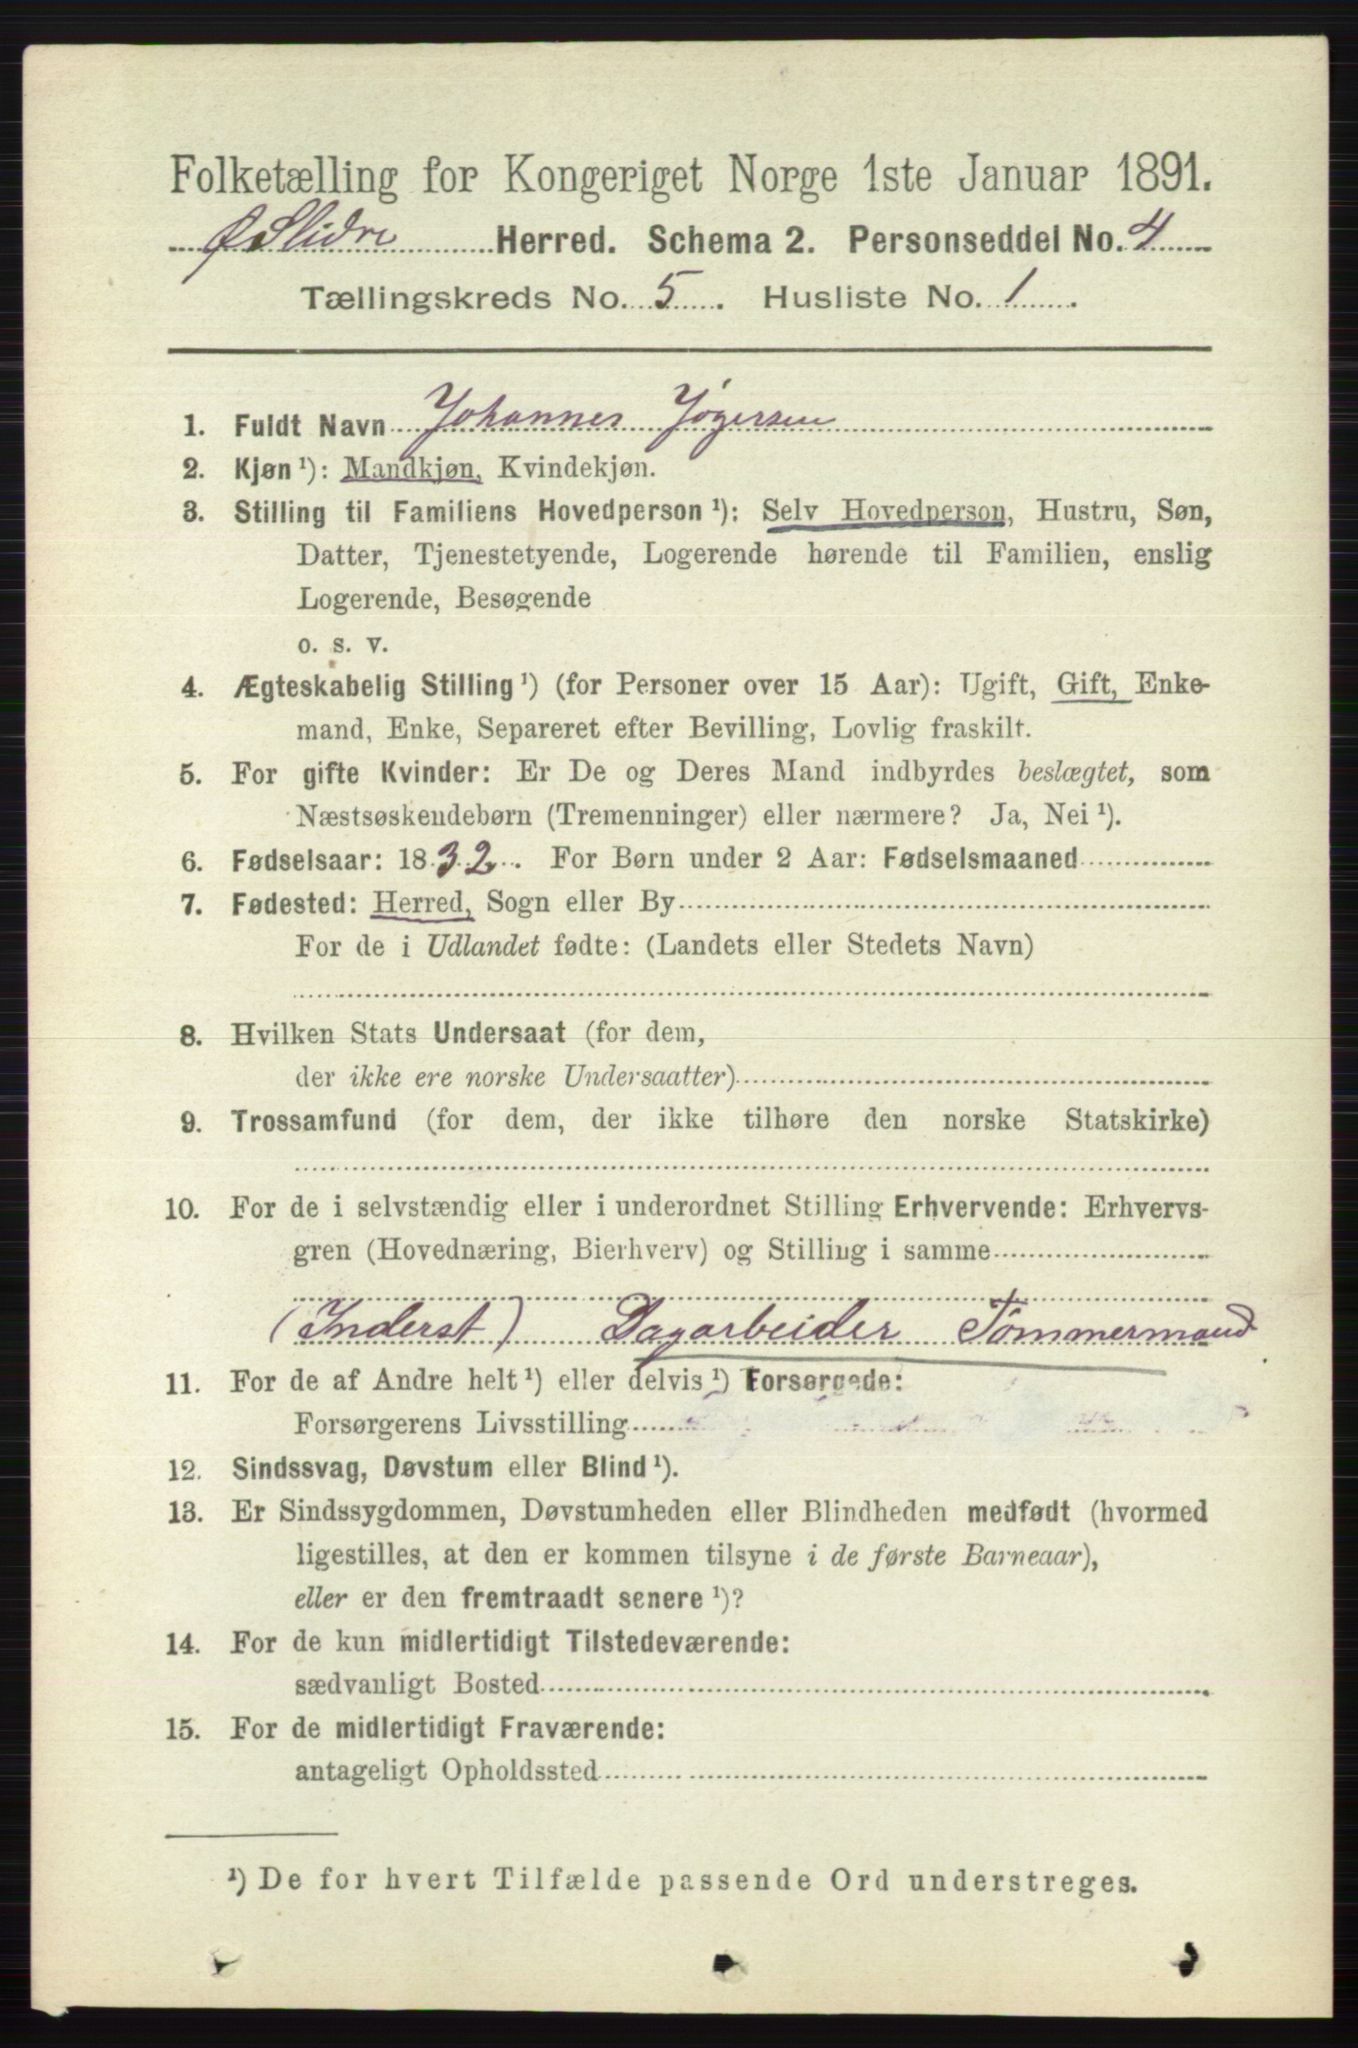 Folketælling for Kongeriget Norge 1ste Januar 1891.
Ø Slidre Herred. Schema 2. Personseddel No. 4
Tællingskreds No. 5. Husliste No. 1.
1. Fuldt Navn Johannes Jógersen
2. Kjøn ¹): Mandkjøn, Kvindekjøn.
3. Stilling til Familiens Hovedperson ¹): Selv Hovedperson, Hustru, Søn,
Datter, Tjenestetyende, Logerende hørende til Familien, enslig
Logerende, Besøgende
o. s. v.
4. Ægteskabelig Stilling ¹) (for Personer over 15 Aar): Ugift, Gift, Enke-
mand, Enke, Separeret efter Bevilling, Lovlig fraskilt.
5. For gifte Kvinder: Er De og Deres Mand indbyrdes beslægtet, som
Næstsøskendebørn (Tremenninger) eller nærmere? Ja, Nei ¹).
6. Fødselsaar: 1832. For Børn under 2 Aar: Fødselsmaaned
7. Fødested: Herred, Sogn eller By
For de i Udlandet fødte: (Landets eller Stedets Navn)
8. Hvilken Stats Undersaat (for dem,
der ikke ere norske Undersaatter)
9. Trossamfund (for dem, der ikke tilhøre den norske Statskirke)
10. For de i selvstændig eller i underordnet Stilling Erhvervende: Erhvervs-
gren (Hovednæring, Bierhverv) og Stilling i samme
(Inderst) Dagarbeider Tømmermand
11. For de af Andre helt ¹) eller delvis ¹) Forsørgede:
Forsørgerens Livsstilling
12. Sindssvag, Døvstum eller Blind ¹).
13. Er Sindssygdommen, Døvstumheden eller Blindheden medfødt (hvormed
ligestilles, at den er kommen tilsyne i de første Barneaar),
eller er den fremtraadt senere ¹)?
14. For de kun midlertidigt Tilstedeværende:
sædvanligt Bosted
15. For de midlertidigt Fraværende:
antageligt Opholdssted
¹) De for hvert Tilfælde passende Ord understreges.